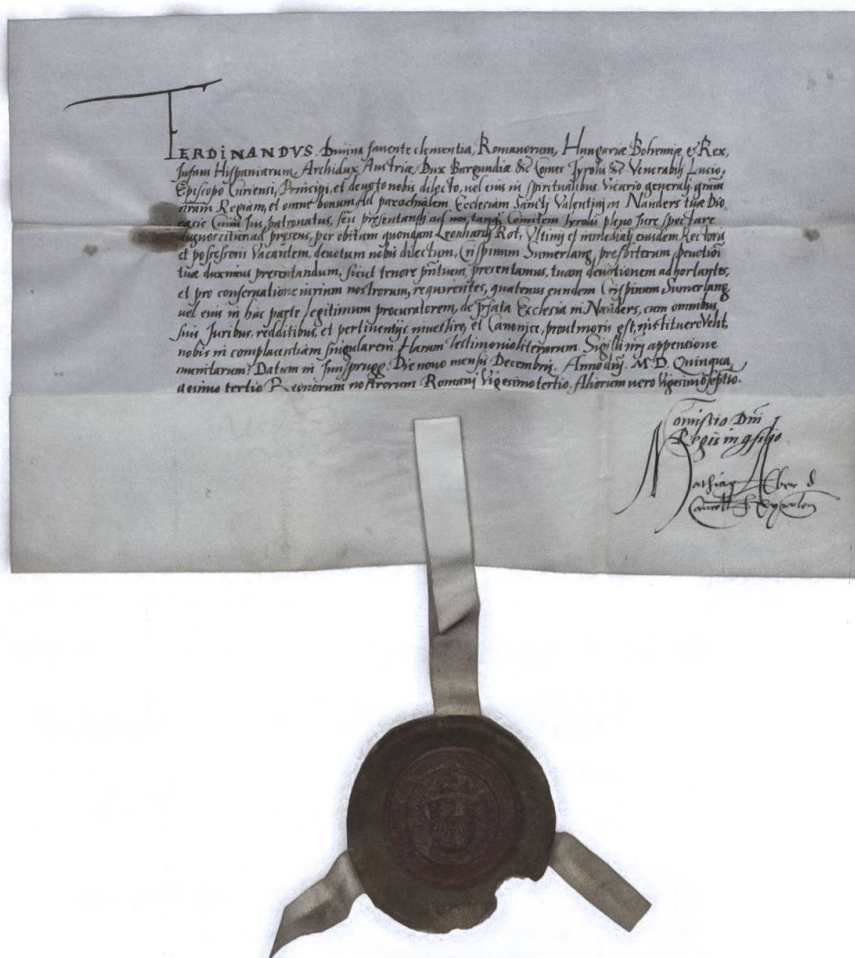 FERDINANDVS. Diuina fauente clementia, Romanorum, Hungariæ Bohemiæ &c Rex,
Infans Hispaniarum, Archidux Austriæ, Dux Burgundiæ &c Comes Tyrolis &c Venerabilj Lucio,
Episcopo Curiensi, Principi, et deuoto nobis dilecto, vel eius in spiritualibus Vicario generalj gratiam
nram Regiam, et omne bonum. Ad parochialem Ecclesiam Sancti Valentinj in Nauders tuæ Dio
cesis Cuius Ius patronatus, seu presentandj ad nos, tanquam Comitem Tyrolis pleno Iure spectare
dignoscitur ad presens, per obitum quondam Leonhardj Rot, Vltimj et immediatj eiusdem Rectoris
et possessoris Vacantem, deuotum nobis dilectum, Crispinum Sumerlang, presbiterum deuotionj
tuæ duximus presentandum, sicut tenore pntium, presentamus, tuam deuotionem adhortantes,
et pro conseruatione iurium nostrorum, requirentes, quatenus eundem Crispinum Sumerlang,
vel eius in hac parte legitimum procuratorem, de Pfata Ecclesia in Nauders, cum omnibus,
suis Iuribus, redditibus, et pertinentijs inuestire, et Canonice, prout moris est, instituere Velit,
nobis in complacentiam singularem Harum testimonio literarum. Sigillj nrj appensione
munitarum. Datum in Innsprugg. Die nono mensis Decembris. Anno dnj. M.D. Quinqua
gesimo tertio Regnorum nostrorum Romanj Vigesimo tertio. Aliorum vero Vigesimoseptio.
Comissio Dni
Regis in gsilio
Mathias Alber d